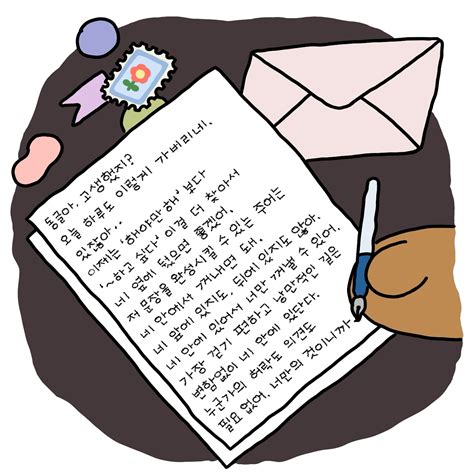 동글아, 고생했지?
오늘 하루도 이렇게 가버리네.
있잖아..
이제는 '해야만 해' 보다
'~하고 싶다' 이걸 더 찾아서
네 옆에 뒀으면 좋겠어.
저 문장을 완성시킬 수 있는 주어는
네 안에서 꺼내면 돼.
네 앞에 있지도, 뒤에 있지도 않아.
네 안에 있어서 너만 꺼낼 수 있어
가장 걷기 편하고 낭만적인 길은
변함없이 네 안에 있단다.
누군가의 허락도 의견도
필요 없어. 너만의 것이니까